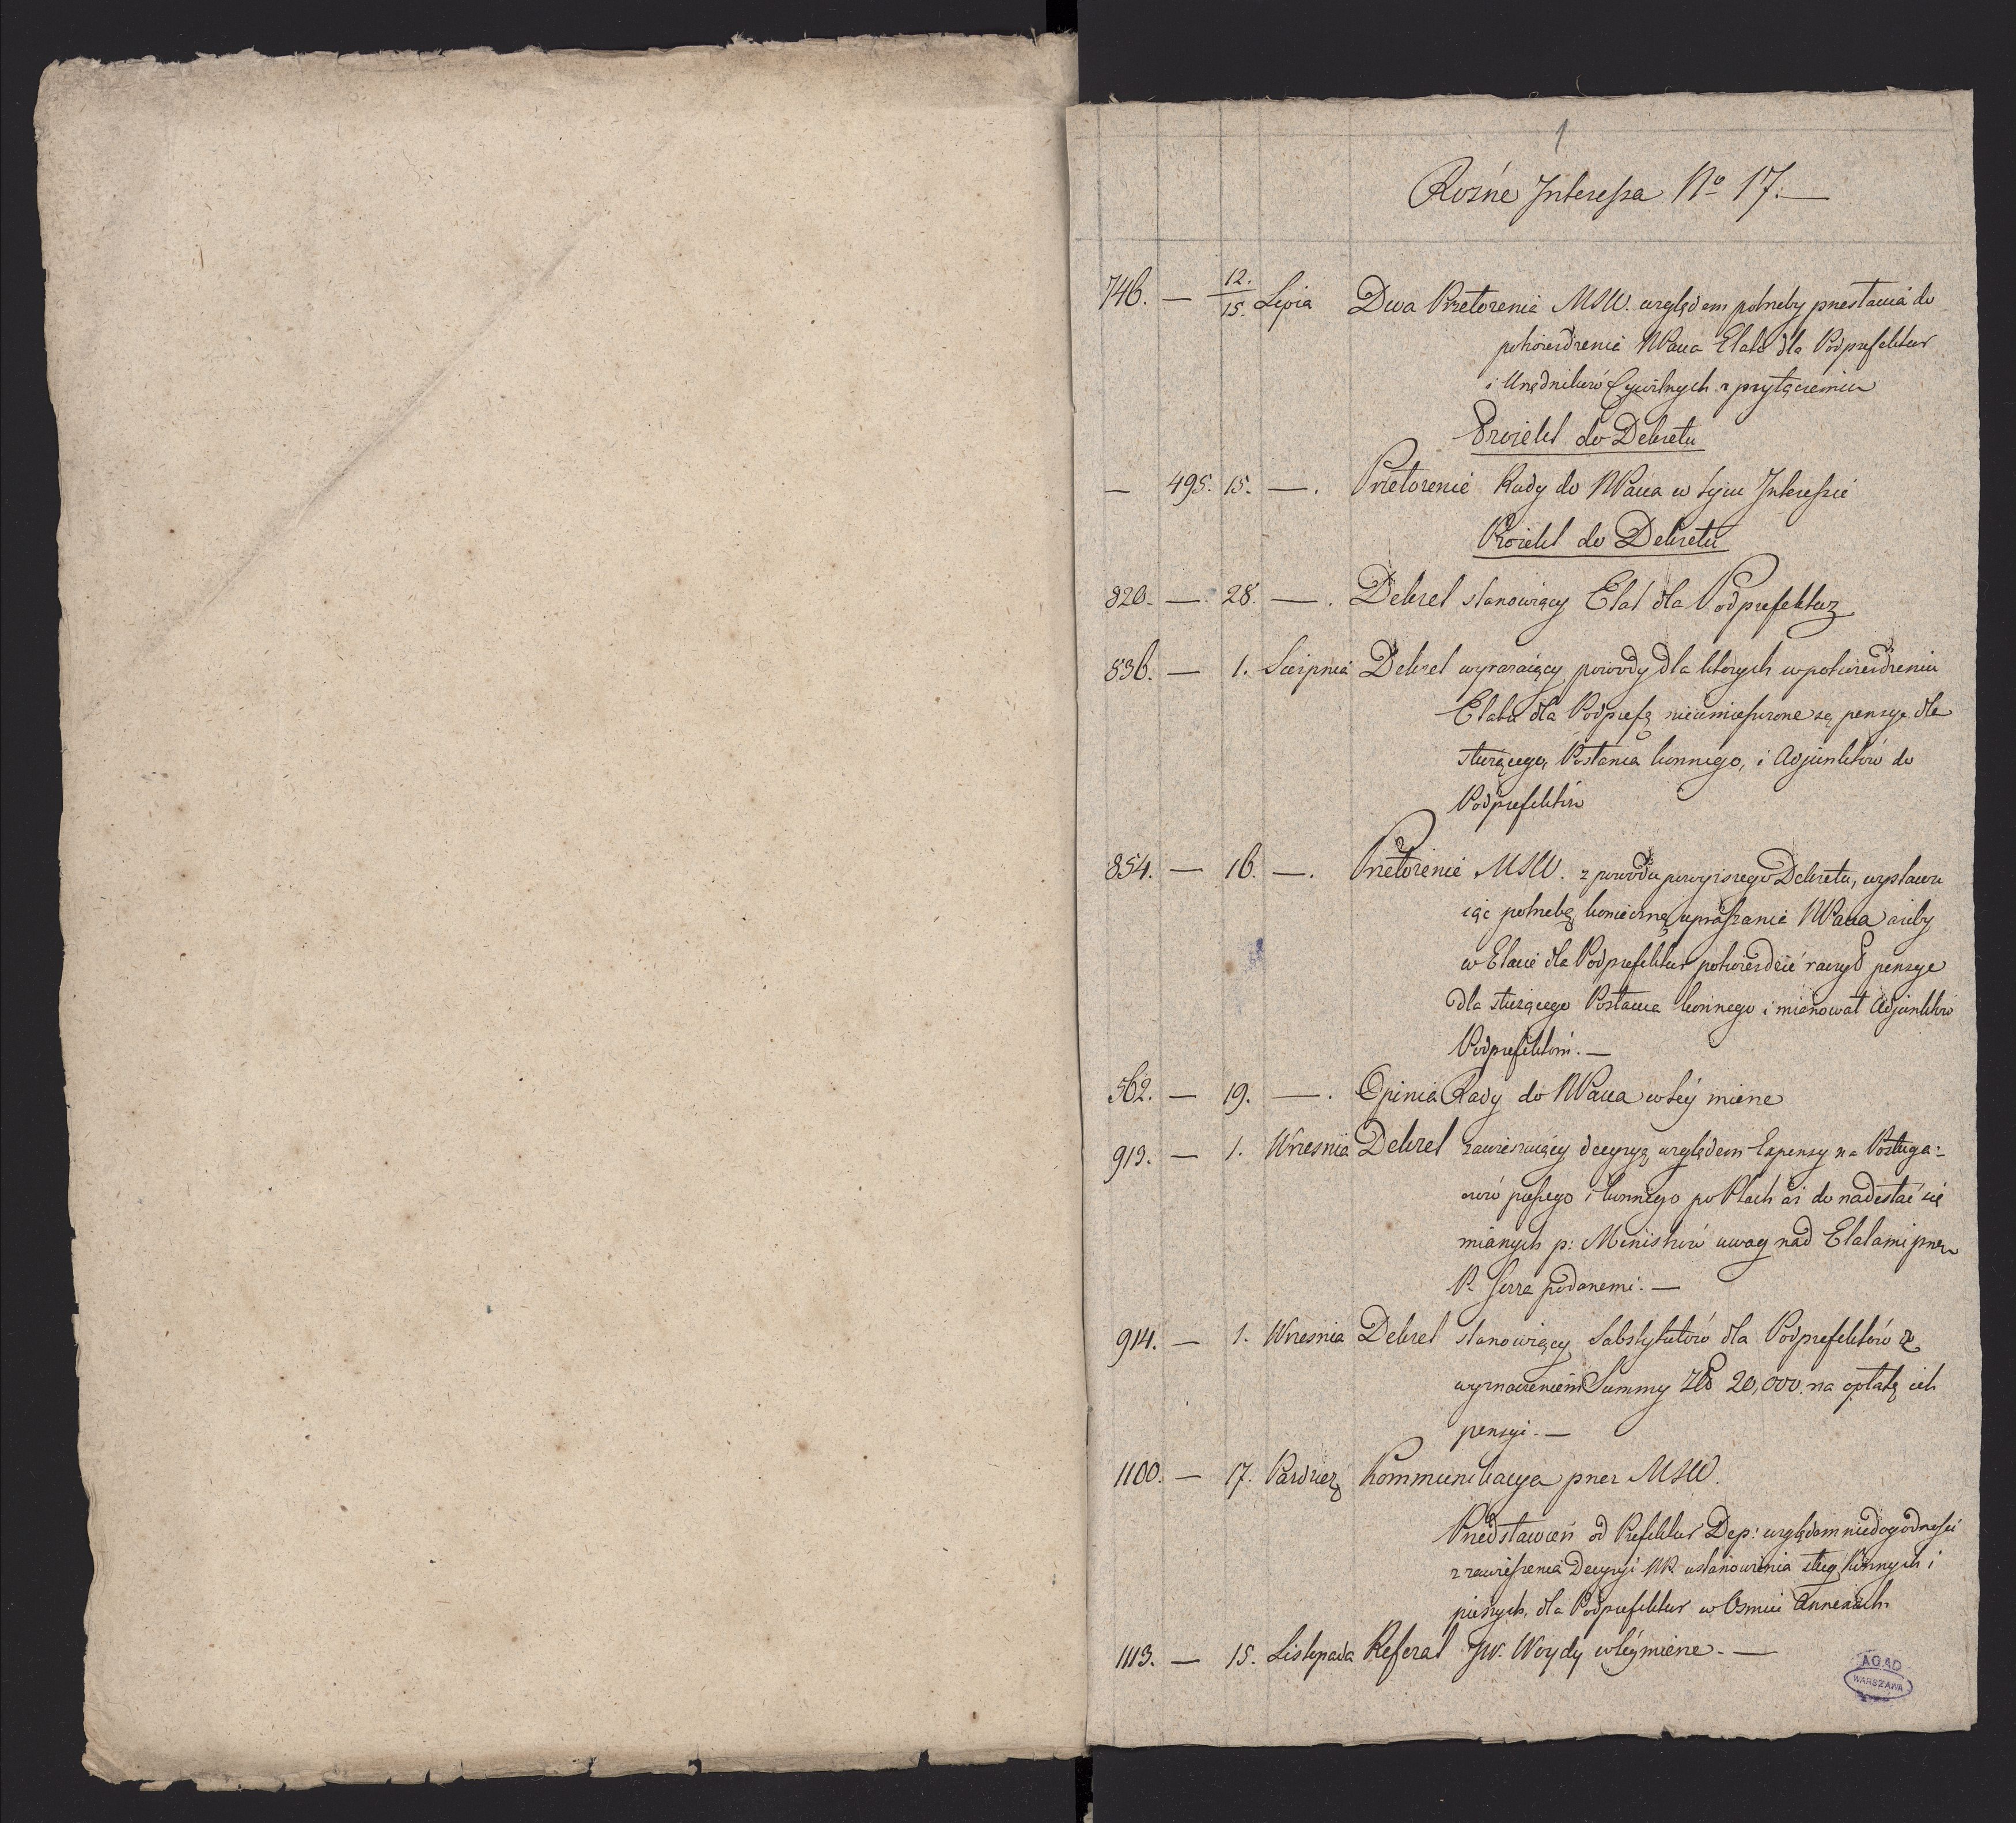 1
Rożne Interessa No 17.—
746. — 12./15. Lipia Dwa Przełożenia MSW. względem potrzeby przesłania do
potwierdzenia NPana Etatu dla Podprefektur
i Urzędników Cywilnych z przyłączeniem
Proiekt do Dekretu
— 495. 15. —. Przełożenie Rady do NPana w tym Interessie
Proiekt do Dekretu
820. — 28. —. Dekret stanowiący Etat dla Podprefektur
836. — 1. Sierpnia Dekret wyrażaiący powody dla których w potwierdzeniu
Etatu dla Podpref. nieumieszczone są pensye dla
służącego, Posłańca konnego, i Adjunktów do
Podprefektów
854. — 16. —. Przełożenie MSW. z powodu powyższego Dekretu, wystawu
iąc potrzebę konieczną, upraszanie NPana aieby
w Etacie dla Podprefektur potwierdzić raczył pensye
dla służącego Posłańca konnego i mianował Adjunktów
Podprefektom. —
562. — 19. —. Opinia Rady do NPana w tey mierze
913. — 1. Wrzesnia Dekret zawieszaiący decyzyą względem Expensy na Posługa:
czów pieszego i konnego po Ptach aż do nadesłać się
mianych p: Ministrów uwag nad Etatami przez
P. Serra podanemi. —
914. — 1. Wrzesnia Dekret stanowiący Substytutów dla Podprefektów z
wyznaczeniem Summy Złł 20,000. na opłatę ich
pensyi. —
1100. — 17. Pazdzier. Kommunikacya przez MSW.
Przedstawień od Prefektur Dep: względem niedogodności
z zawieszenia Decyzyi NP. ustanowienia sług konnych i
pieszych, dla Podprefektur w Osmiu Annexach
1113. — 15. Listopada Referat JW. Woydy w tey mierze. —
AGAD
WARSZAWA